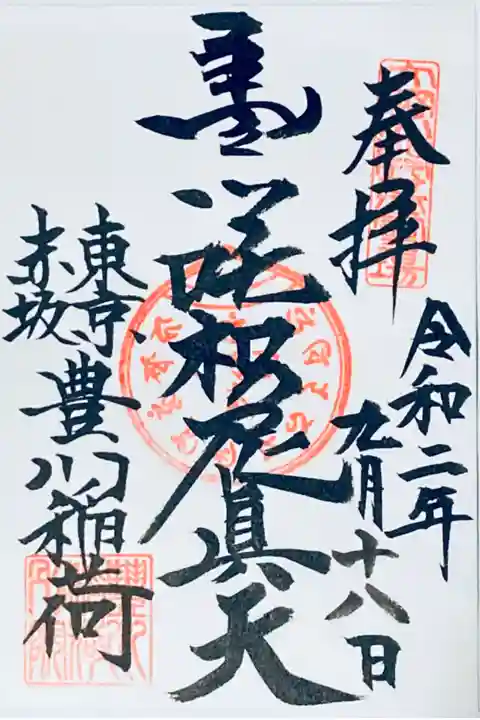 奉拝
令和二年
九月十八日
咤枳尼眞天
東京
赤坂
豊川稲荷